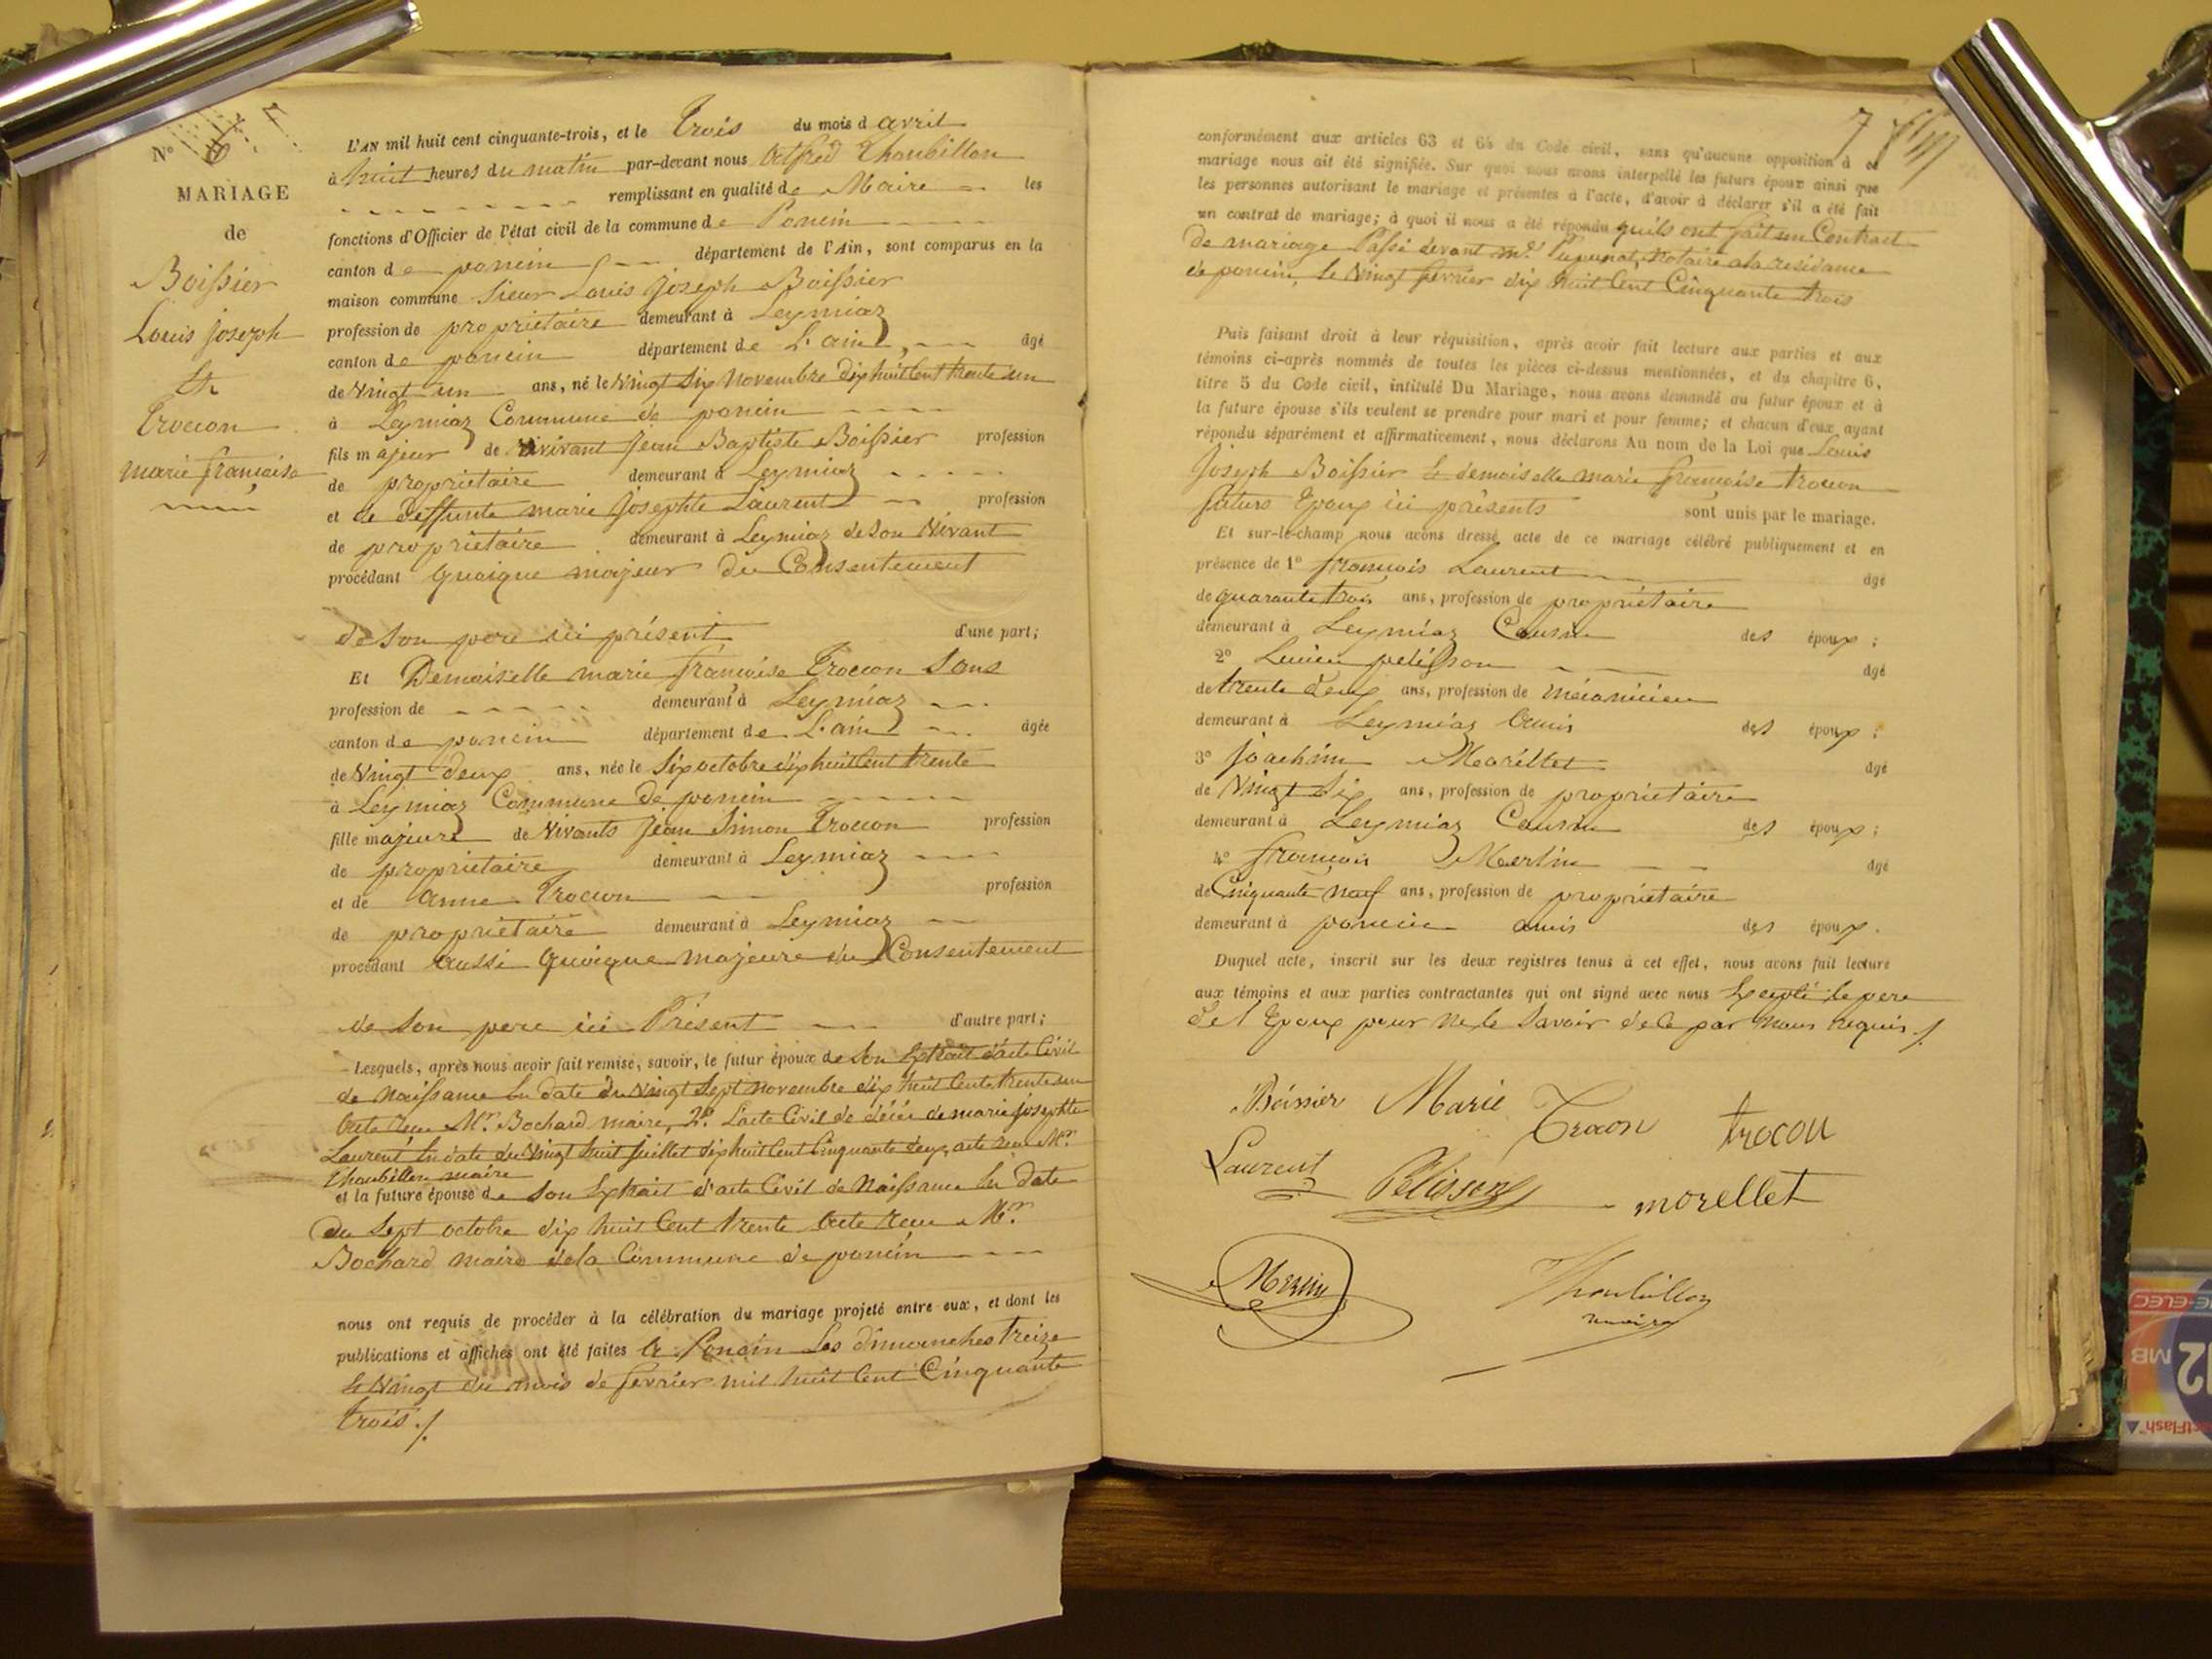 N° 6. 7
MARIAGE
de
Boissier
Louis joseph
Et
Trocon
marie françoise
L'AN mil huit cent cinquante-trois, et le Trois du mois d avril
à huit heures du matin par-devant nous Alfred Thoubillon
remplissant en qualité de Maire les
fonctions d'Officier de l'état civil de la commune de Poncin
canton de poncin département de l'Ain, sont comparus en la
maison commune Sieur Louis Joseph Boissier
profession de propriétaire demeurant à Leymiaz
canton de poncin département de L'ain, âgé
de Vingt un ans, né le Vingt Six Novembre Dix huit Cent trente un
à Leymiaz Commune de poncin
fils majeur de vivant Jean Baptiste Boissier profession
de propriétaire demeurant à Leymiaz
et de deffunte marie Josephte Laurent profession
de propriétaire demeurant à Leymiaz de Son Vivant
procédant quoique majeur du Consentement
de Son pere ici présent d'une part;
Et Demoiselle marie françoise Trocon Sans
profession de demeurant à Leymiaz
canton de poncin département de L'ain âgée
de Vingt deux ans, née le Six octobre dix huit Cent trente
à Leymiaz Commune de poncin
fille majeure de Vivants Jean Simon Trocon profession
de propriétaire demeurant à Leymiaz
et de Anne Trocon profession
de propriétaire demeurant à Leymiaz
procédant aussi quoique majeure du Consentement
de Son pere ici Présent d'autre part;
Lesquels, après nous avoir fait remise, savoir, le futur époux de Son Extrait d'acte Civil
de Naissance En date du Vingt Sept Novembre dix huit Cent trente un
acte reçu Mr. Bochard maire, 2°. L'acte Civil de décés de marie josephte
Laurent En date du Vingt huit Juillet dix huit Cent Cinquante deux, acte reçu Mr.
Thoubillon maire
et la future épouse de Son Extrait d'acte Civil de Naissance En date
du Sept octobre dix huit Cent trente acte reçu Mr.
Bochard maire de la Commune de poncin
nous ont requis de procéder à la célébration du mariage projeté entre eux, et dont les
publications et affiches ont été faites à Poncin Les dimanches treize
Et Vingt du mois de fevrier mil huit Cent Cinquante
trois ./.
7
conformément aux articles 63 et 64 du Code civil, sans qu'aucune opposition à ce
mariage nous ait été signifiée. Sur quoi nous avons interpellé les futurs époux ainsi que
les personnes autorisant le mariage et présentes à l'acte, d'avoir à déclarer s'il a été fait
un contrat de mariage; à quoi il nous a été répondu qu'ils ont fait un Contract
de mariage Passé devant me. Notaire a la residance
de poncin, le Vingt fevrier dix huit Cent Cinquante trois
Puis faisant droit à leur réquisition, après avoir fait lecture aux parties et aux
témoins ci-après nommés de toutes les pièces ci-dessus mentionnées, et du chapitre 6,
titre 5 du Code civil, intitulé Du Mariage, nous avons demandé au futur époux et à
la future épouse s'ils veulent se prendre pour mari et pour femme; et chacun d'eux ayant
répondu séparément et affirmativement, nous déclarons Au nom de la Loi que Louis
Joseph Boissier Et demoiselle marie françoise trocon
futurs Epoux ici présents sont unis par le mariage.
Et sur-le-champ nous avons dressé acte de ce mariage célébré publiquement et en
présence de 1° françois Laurent âgé
de quarante trois ans, profession de propriétaire
demeurant à Leymiaz Cousin des époux;
2° Lucien pelisson âgé
de trente deux ans, profession de mécanicien
demeurant à Leymiaz amis des époux;
3° Joachim Morellet âgé
de Vingt Six ans, profession de propriétaire
demeurant à Leymiaz Cousin des époux;
4° françois Merlin âgé
de Cinquante neuf ans, profession de propriétaire
demeurant à poncin amis des époux.
Duquel acte, inscrit sur les deux registres tenus à cet effet, nous avons fait lecture
aux témoins et aux parties contractantes qui ont signé avec nous Excepté le pere
de l'Epoux pour ne le Savoir de ce par Nous requis ./.
Boissier Marie Trocon trocon
Laurent Pélisson morellet
Merlin Thoubillon
maire